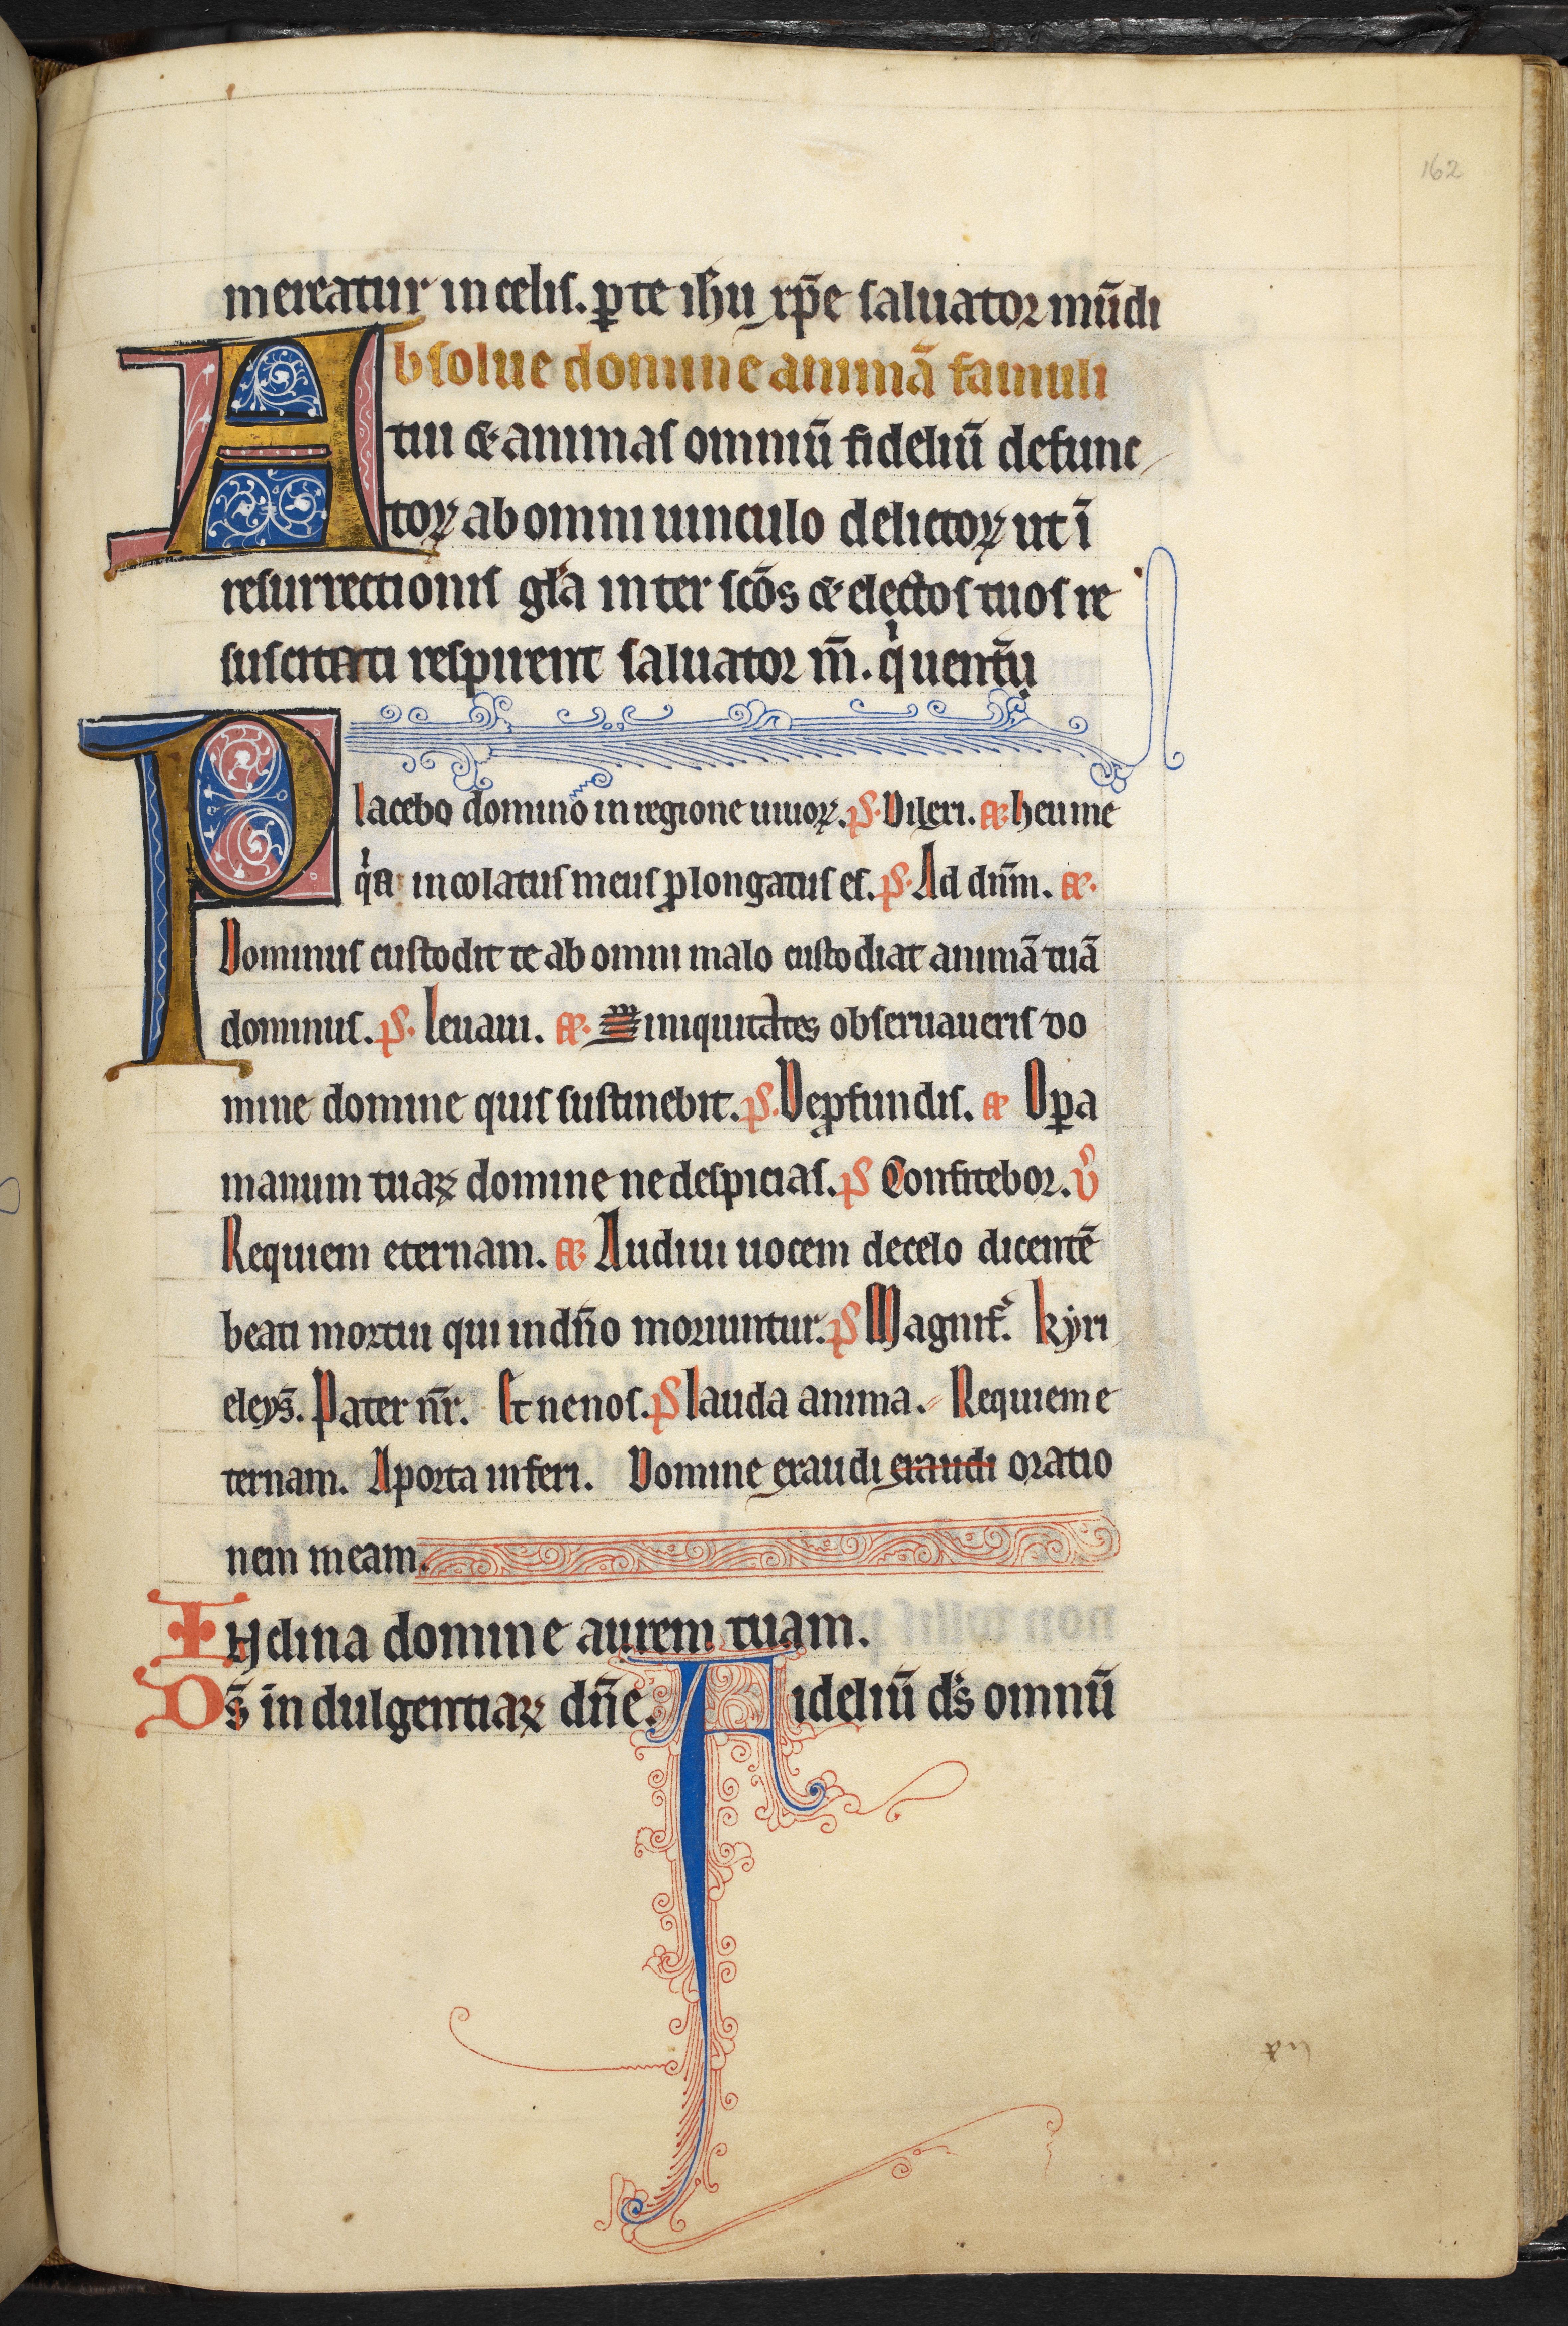 162
mereatur in celis. ꝑ te ihu xp̄e saluator mūdi
Absolue domine animā famuli
tui & animas omniū fideliū defunc
toꝝ ab omni uinculo delictoꝝ ut ī
resurrectionis gl̄a inter sc̄os & electos tuos re
suscitati respirent saluator m̄. q̇ uentꝰ
Placebo domino in regione uiuoꝝ. P̄s. Dilexi. æ. heu me
q̇a incolatus meus ꝓlongatus es. P̄s. Ad dn̄m. æ.
Dominus custodit te ab omni malo custodiat animā tuā
dominus. P̄s. Leuaui. æ. iniquitates obseruaueris do
mine domine quis sustinebit. P̄s. De ꝓfundis. æ Oꝑa
manuum tuaꝝ domine ne despicias. P̄s Confitebor. v̄
Requiem eternam. æ. Audiui uocem de celo dicentē
beati mortui qui in dn̄o moriuntur. P̄s Magnif. kyri
eleys̄. Pater nr̄. Et ne nos. P̄s lauda anima. Requiem e
ternam. A porta inferi. Domine exaudi exaudi oratio
nem meam.
Inclina domine aurem tuam.
Ds̄ indulgentiaꝝ dn̄e. Fideliū ds̄ omniū